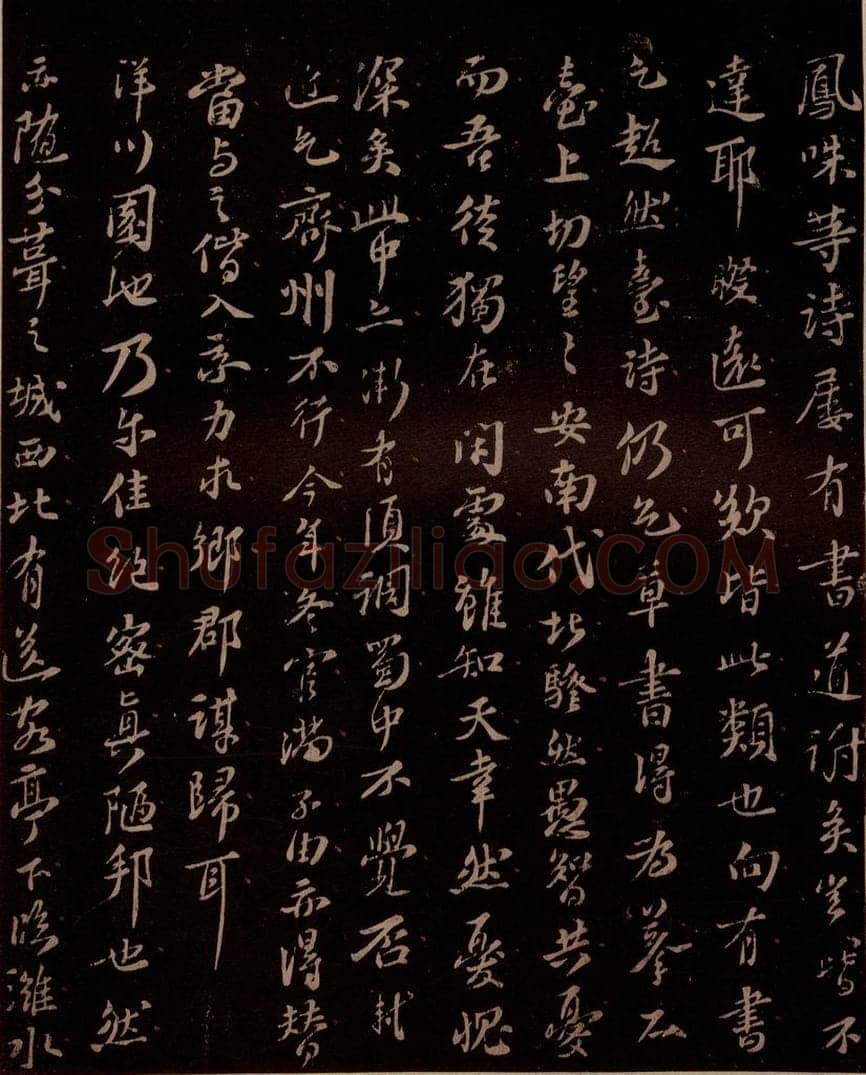 鳳咮等詩屢有書道謝矣豈皆不
達耶睽遠可歎皆此類也向有書
乞超然臺詩仍乞草書得為摹石
臺上切望〻安南代北騷然愚智共憂
而吾徒獨在閑處雖知天幸然憂愧
深矣此中亦漸有須調蜀中不覺否軾
近乞齊州不行今年冬官滿子由亦得替
當與之偕入京力求鄉郡謀歸耳
洋川園池乃爾佳絕密真陋邦也然
亦隨分葺之城西北有送客亭下臨濰水
Shufaziliao.COM